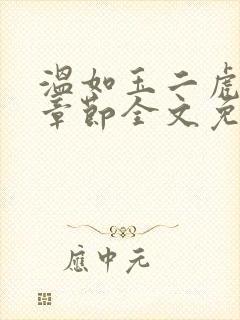 温如玉二虎
章節全文免
應中元